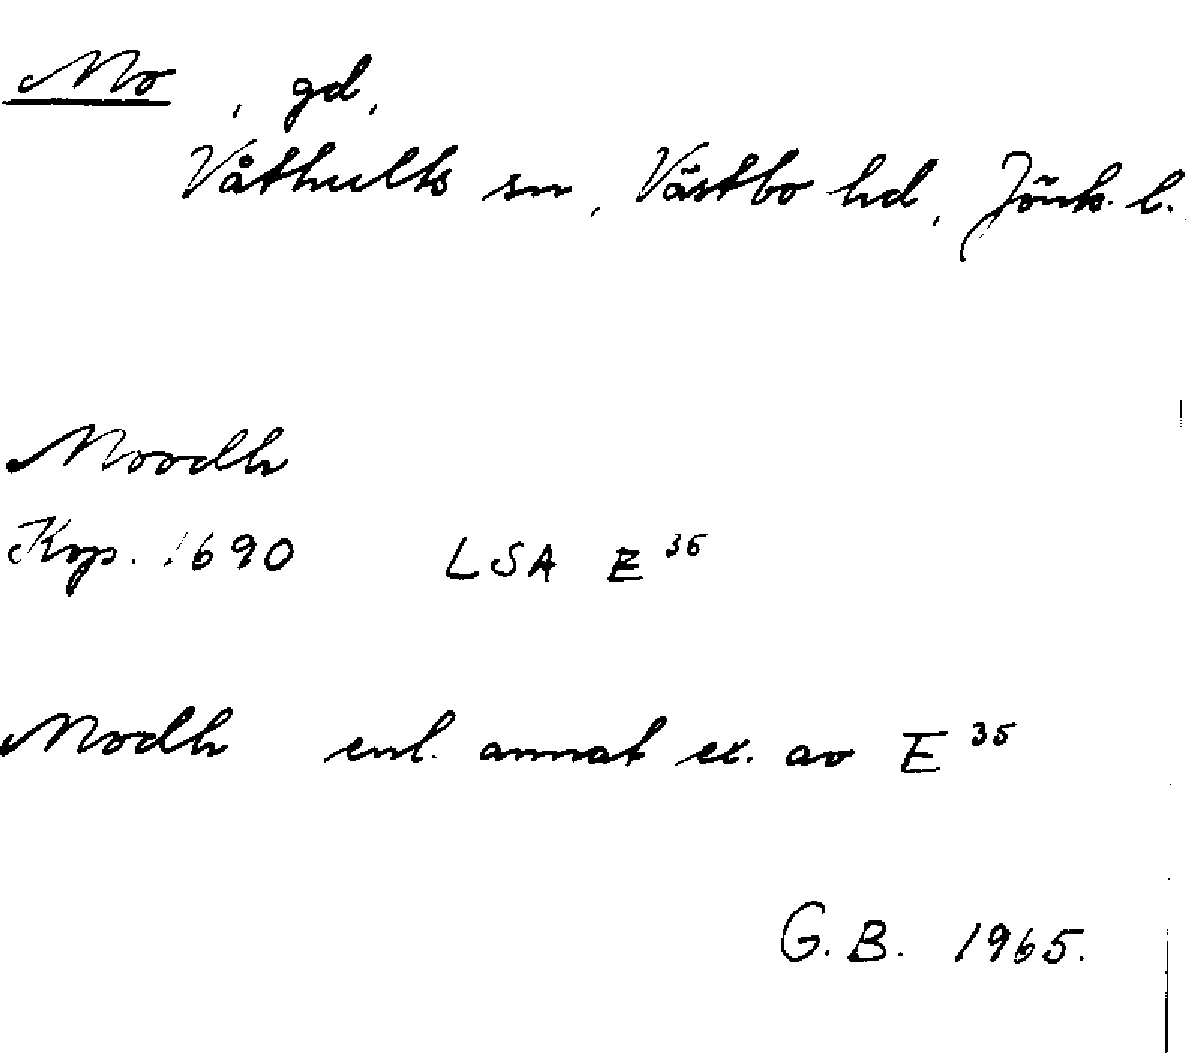 Mo, gd,
Våthults sn, Västbo hd, Jönk. l.
Moodh
Kop. 1690 LSA E 35
Modh enl. annat ex. av E 35
G. B. 1965.